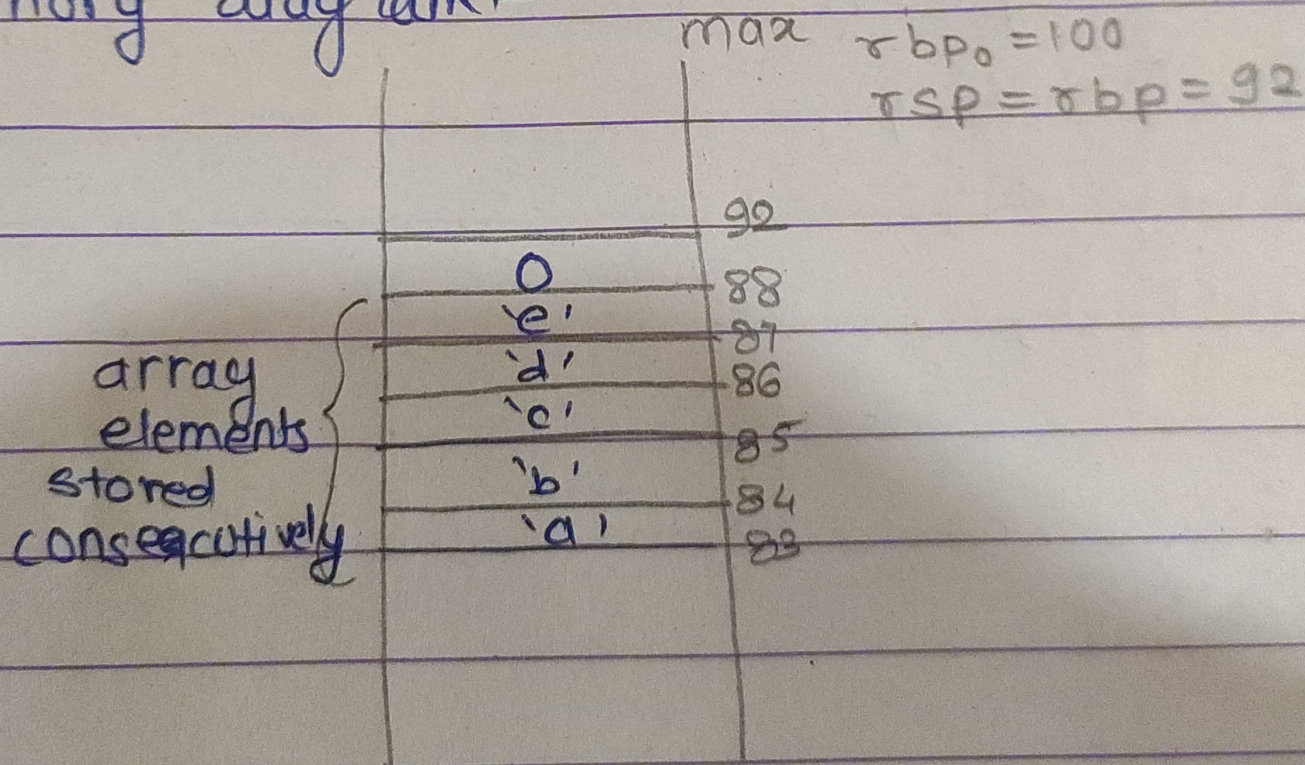 max rbp₀ = 100
rsp = rbp = 92
92
0
88
'e'
87
'd'
86
'c'
85
'b'
84
'a'
83
array
elements
stored
consecutively